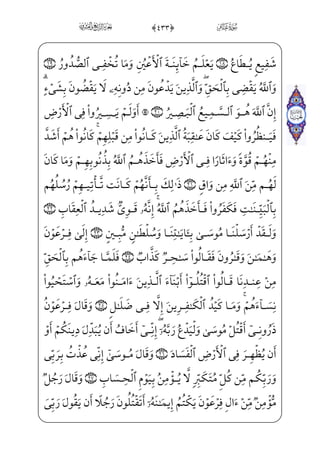 ﴿٤٣٣﴾
شَفِيعٍ يُطَاعُ ۝١٨ يَعْلَمُ خَآئِنَةَ ٱلْأَعْيُنِ وَمَا تُخْفِى ٱلصُّدُورُ ۝١٩
وَٱللَّهُ يَقْضِى بِٱلْحَقِّ ۖ وَٱلَّذِينَ يَدْعُونَ مِن دُونِهِۦ لَا يَقْضُونَ بِشَىْءٍ ۗ
إِنَّ ٱللَّهَ هُوَ ٱلسَّمِيعُ ٱلْبَصِيرُ ۝٢٠ ۞ أَوَلَمْ يَسِيرُوا۟ فِى ٱلْأَرْضِ
فَيَنظُرُوا۟ كَيْفَ كَانَ عَٰقِبَةُ ٱلَّذِينَ كَانُوا۟ مِن قَبْلِهِمْ ۚ كَانُوا۟ هُمْ أَشَدَّ
مِنْهُمْ قُوَّةً وَءَاثَارًا فِى ٱلْأَرْضِ فَأَخَذَهُمُ ٱللَّهُ بِذُنُوبِهِمْ وَمَا كَانَ
لَهُم مِّنَ ٱللَّهِ مِن وَاقٍ ۝٢١ ذَٰلِكَ بِأَنَّهُمْ كَانَت تَّأْتِيهِمْ رُسُلُهُم
بِٱلْبَيِّنَٰتِ فَكَفَرُوا۟ فَأَخَذَهُمُ ٱللَّهُ ۚ إِنَّهُۥ قَوِىٌّ شَدِيدُ ٱلْعِقَابِ ۝٢٢
وَلَقَدْ أَرْسَلْنَا مُوسَىٰ بِـَٔايَٰتِنَا وَسُلْطَٰنٍ مُّبِينٍ ۝٢٣ إِلَىٰ فِرْعَوْنَ
وَهَٰمَٰنَ وَقَٰرُونَ فَقَالُوا۟ سَٰحِرٌ كَذَّابٌ ۝٢٤ فَلَمَّا جَآءَهُم بِٱلْحَقِّ
مِنْ عِندِنَا قَالُوا۟ ٱقْتُلُوٓا۟ أَبْنَآءَ ٱلَّذِينَ ءَامَنُوا۟ مَعَهُۥ وَٱسْتَحْيُوا۟
نِسَآءَهُمْ ۚ وَمَا كَيْدُ ٱلْكَٰفِرِينَ إِلَّا فِى ضَلَٰلٍ ۝٢٥ وَقَالَ فِرْعَوْنُ
ذَرُونِىٓ أَقْتُلْ مُوسَىٰ وَلْيَدْعُ رَبَّهُۥٓ ۖ إِنِّىٓ أَخَافُ أَن يُبَدِّلَ دِينَكُمْ أَوْ
أَن يُظْهِرَ فِى ٱلْأَرْضِ ٱلْفَسَادَ ۝٢٦ وَقَالَ مُوسَىٰٓ إِنِّى عُذْتُ بِرَبِّى
وَرَبِّكُم مِّن كُلِّ مُتَكَبِّرٍ لَّا يُؤْمِنُ بِيَوْمِ ٱلْحِسَابِ ۝٢٧ وَقَالَ رَجُلٌ
مُّؤْمِنٌ مِّنْ ءَالِ فِرْعَوْنَ يَكْتُمُ إِيمَٰنَهُۥٓ أَتَقْتُلُونَ رَجُلًا أَن يَقُولَ رَبِّىَ